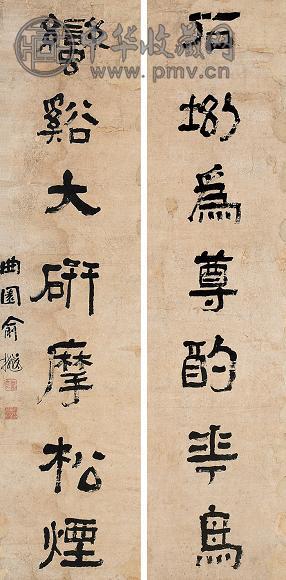 中华收藏网
www.pmv.cn
石坳爲尊酌華鳥
蠻谿大研摩松煙
曲園俞樾